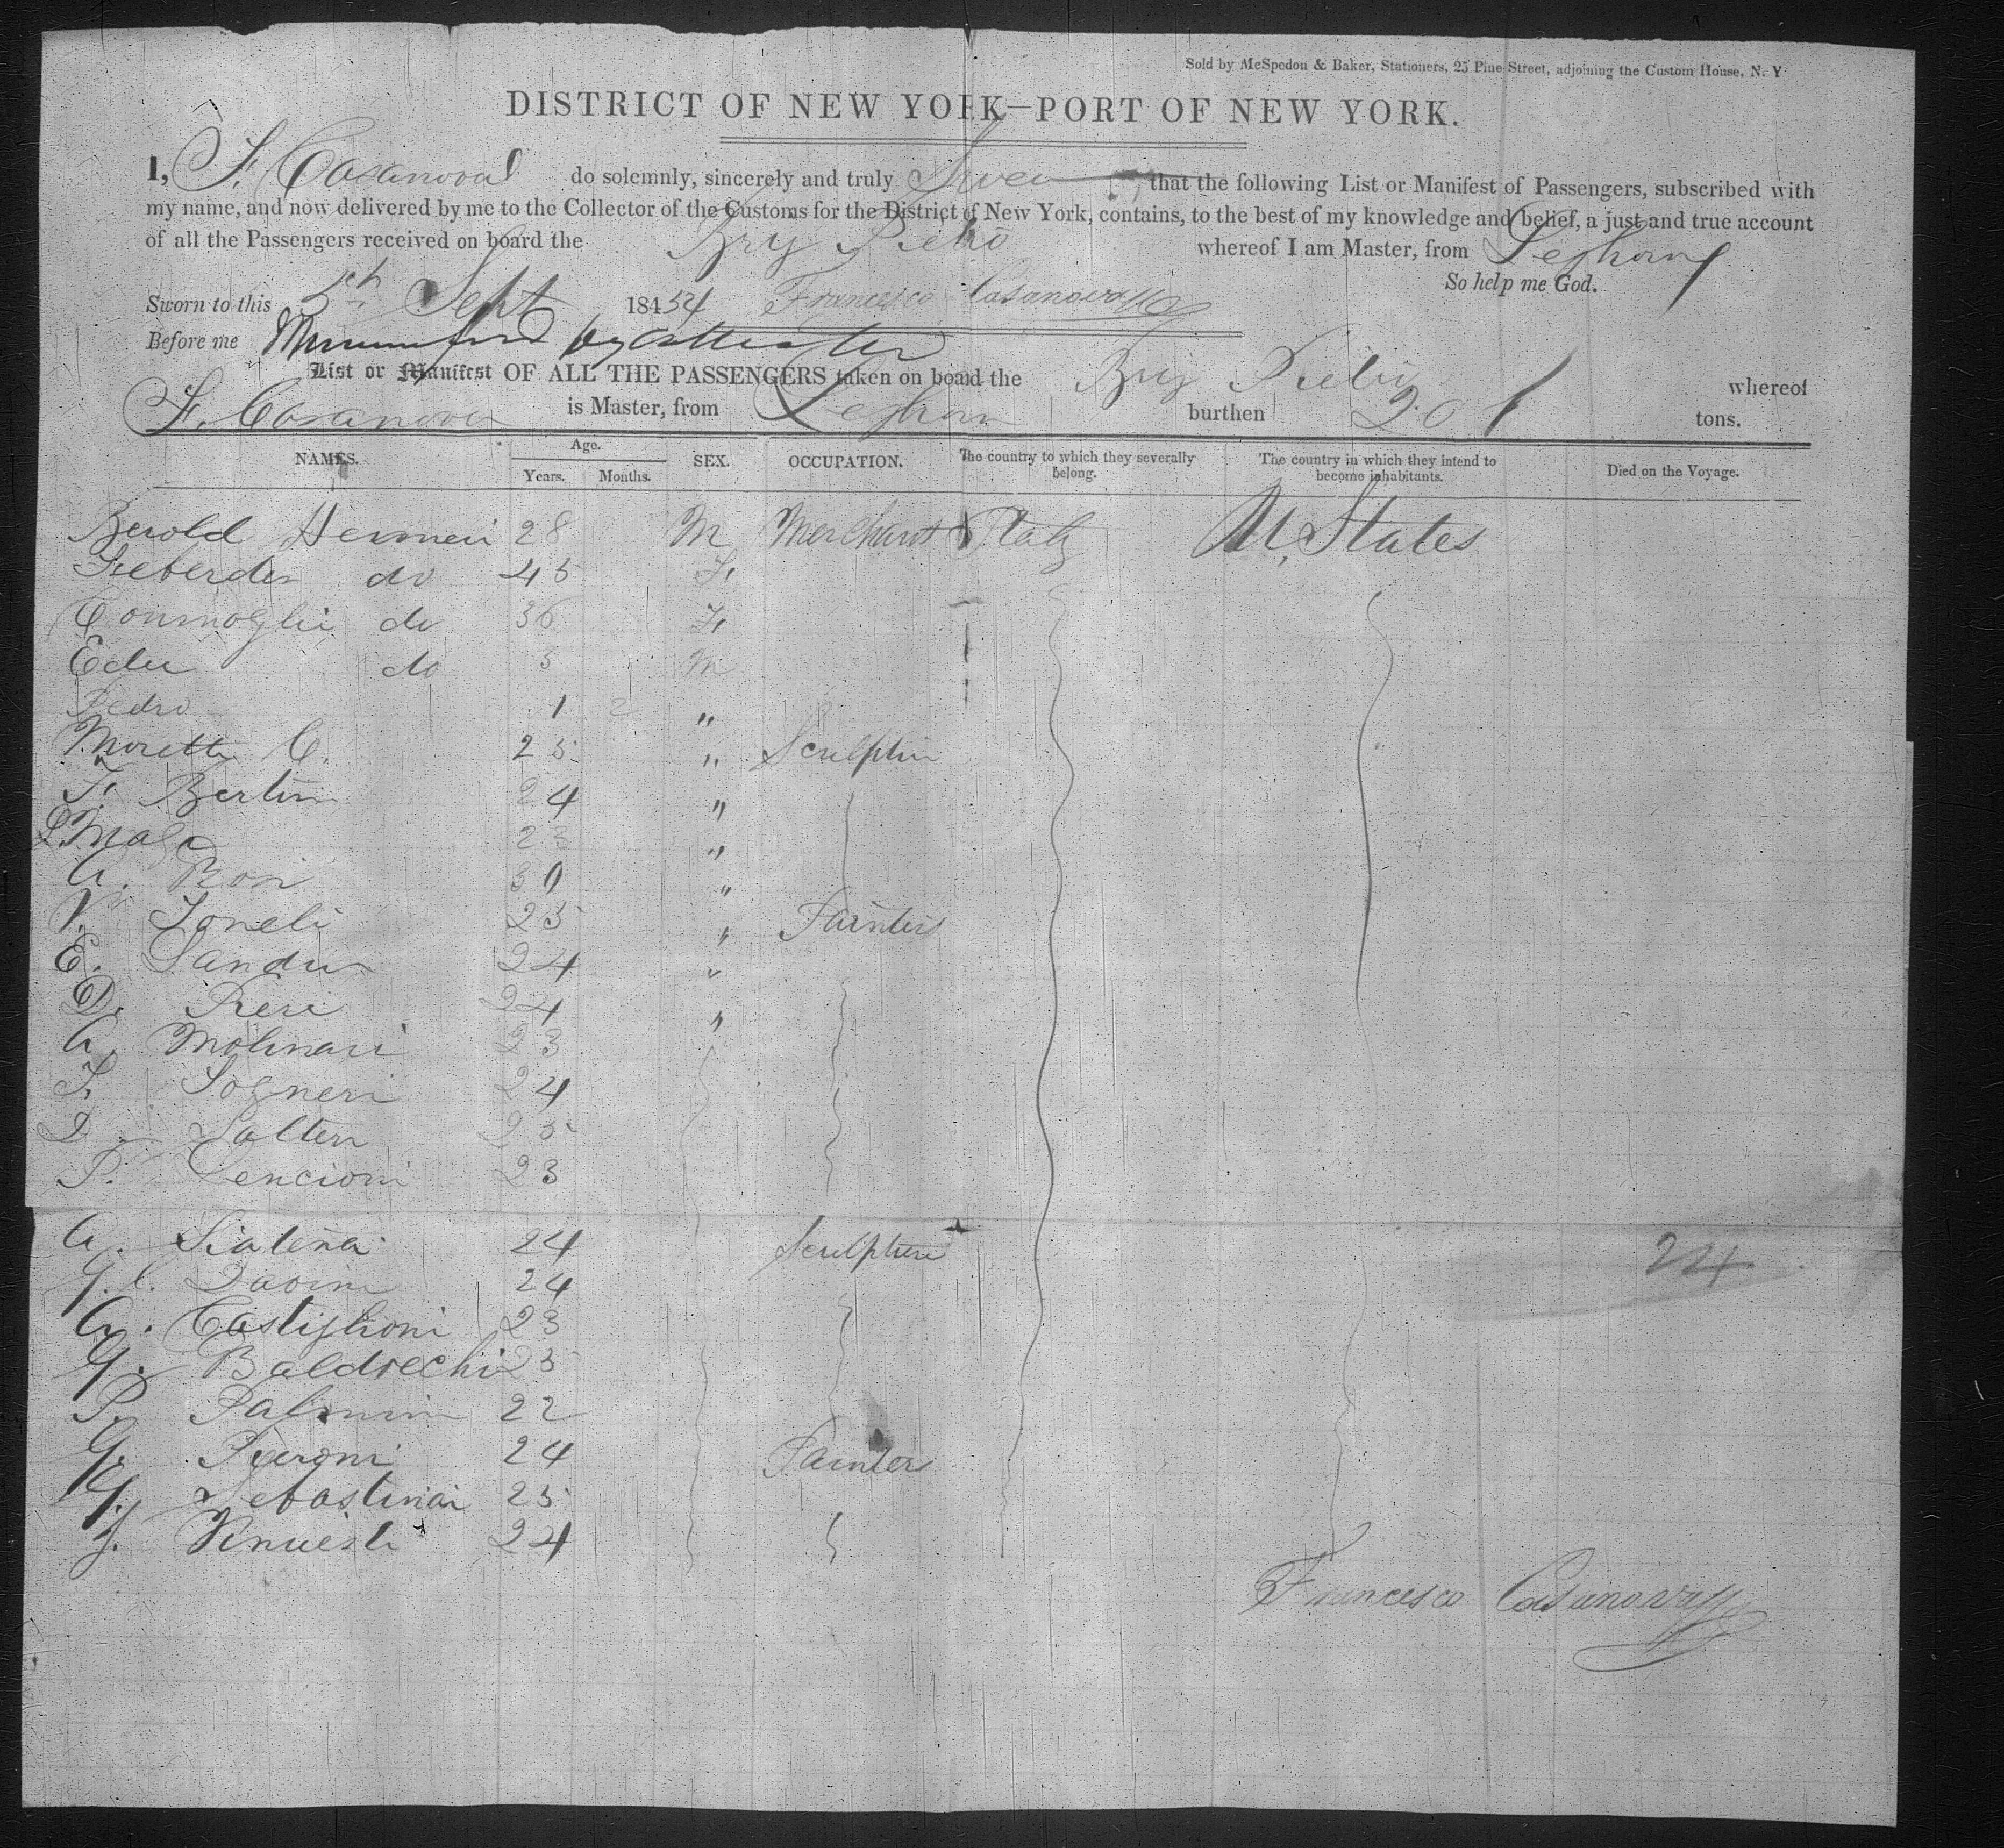 Sold by McSpedon & Baker, Stationers, 25 Pine Street, adjoining the Custom House, N. Y
DISTRICT OF NEW YORK—PORT OF NEW YORK.
I, F. Casanova do solemnly, sincerely and truly Swear that the following List or Manifest of Passengers, subscribed with
my name, and now delivered by me to the Collector of the Customs for the District of New York, contains, to the best of my knowledge and belief, a just and true account
of all the Passengers received on board the Brig whereof I am Master, from Leghorn
So help me God.
Sworn to this 5th Sept 18454 Francesco Casanova
Before me
List or Manifest OF ALL THE PASSENGERS taken on board the Brig whereof
F. Casanova is Master, from Leghorn burthen 201 tons.
NAMES. Age. Years. Months. SEX. OCCUPATION. The country to which they severally belong. The country in which they intend to become inhabitants. Died on the Voyage.
Berold 28 M Merchant Italy U. States
do 45 F.
do 36 F.
do 3 M
Pedro 1 2 "
Moretti C. 25 "
F. Bertini 24 "
L. 23 "
A. 30 "
V. Toneli 25 " Painters
E. 24 "
D. Pieri 24 "
A. Molinari 23
F. Sogneri 24
D. Salteri 25
P. Lencioni 23
A. 24 Sculpture
G. C. Davini 24
A. Castiglioni 23
G. Baldrechi 25
P. 22
G. Pieroni 24 Painters
G. Sebastinai 25
J. 24
24
Francesco Casanova